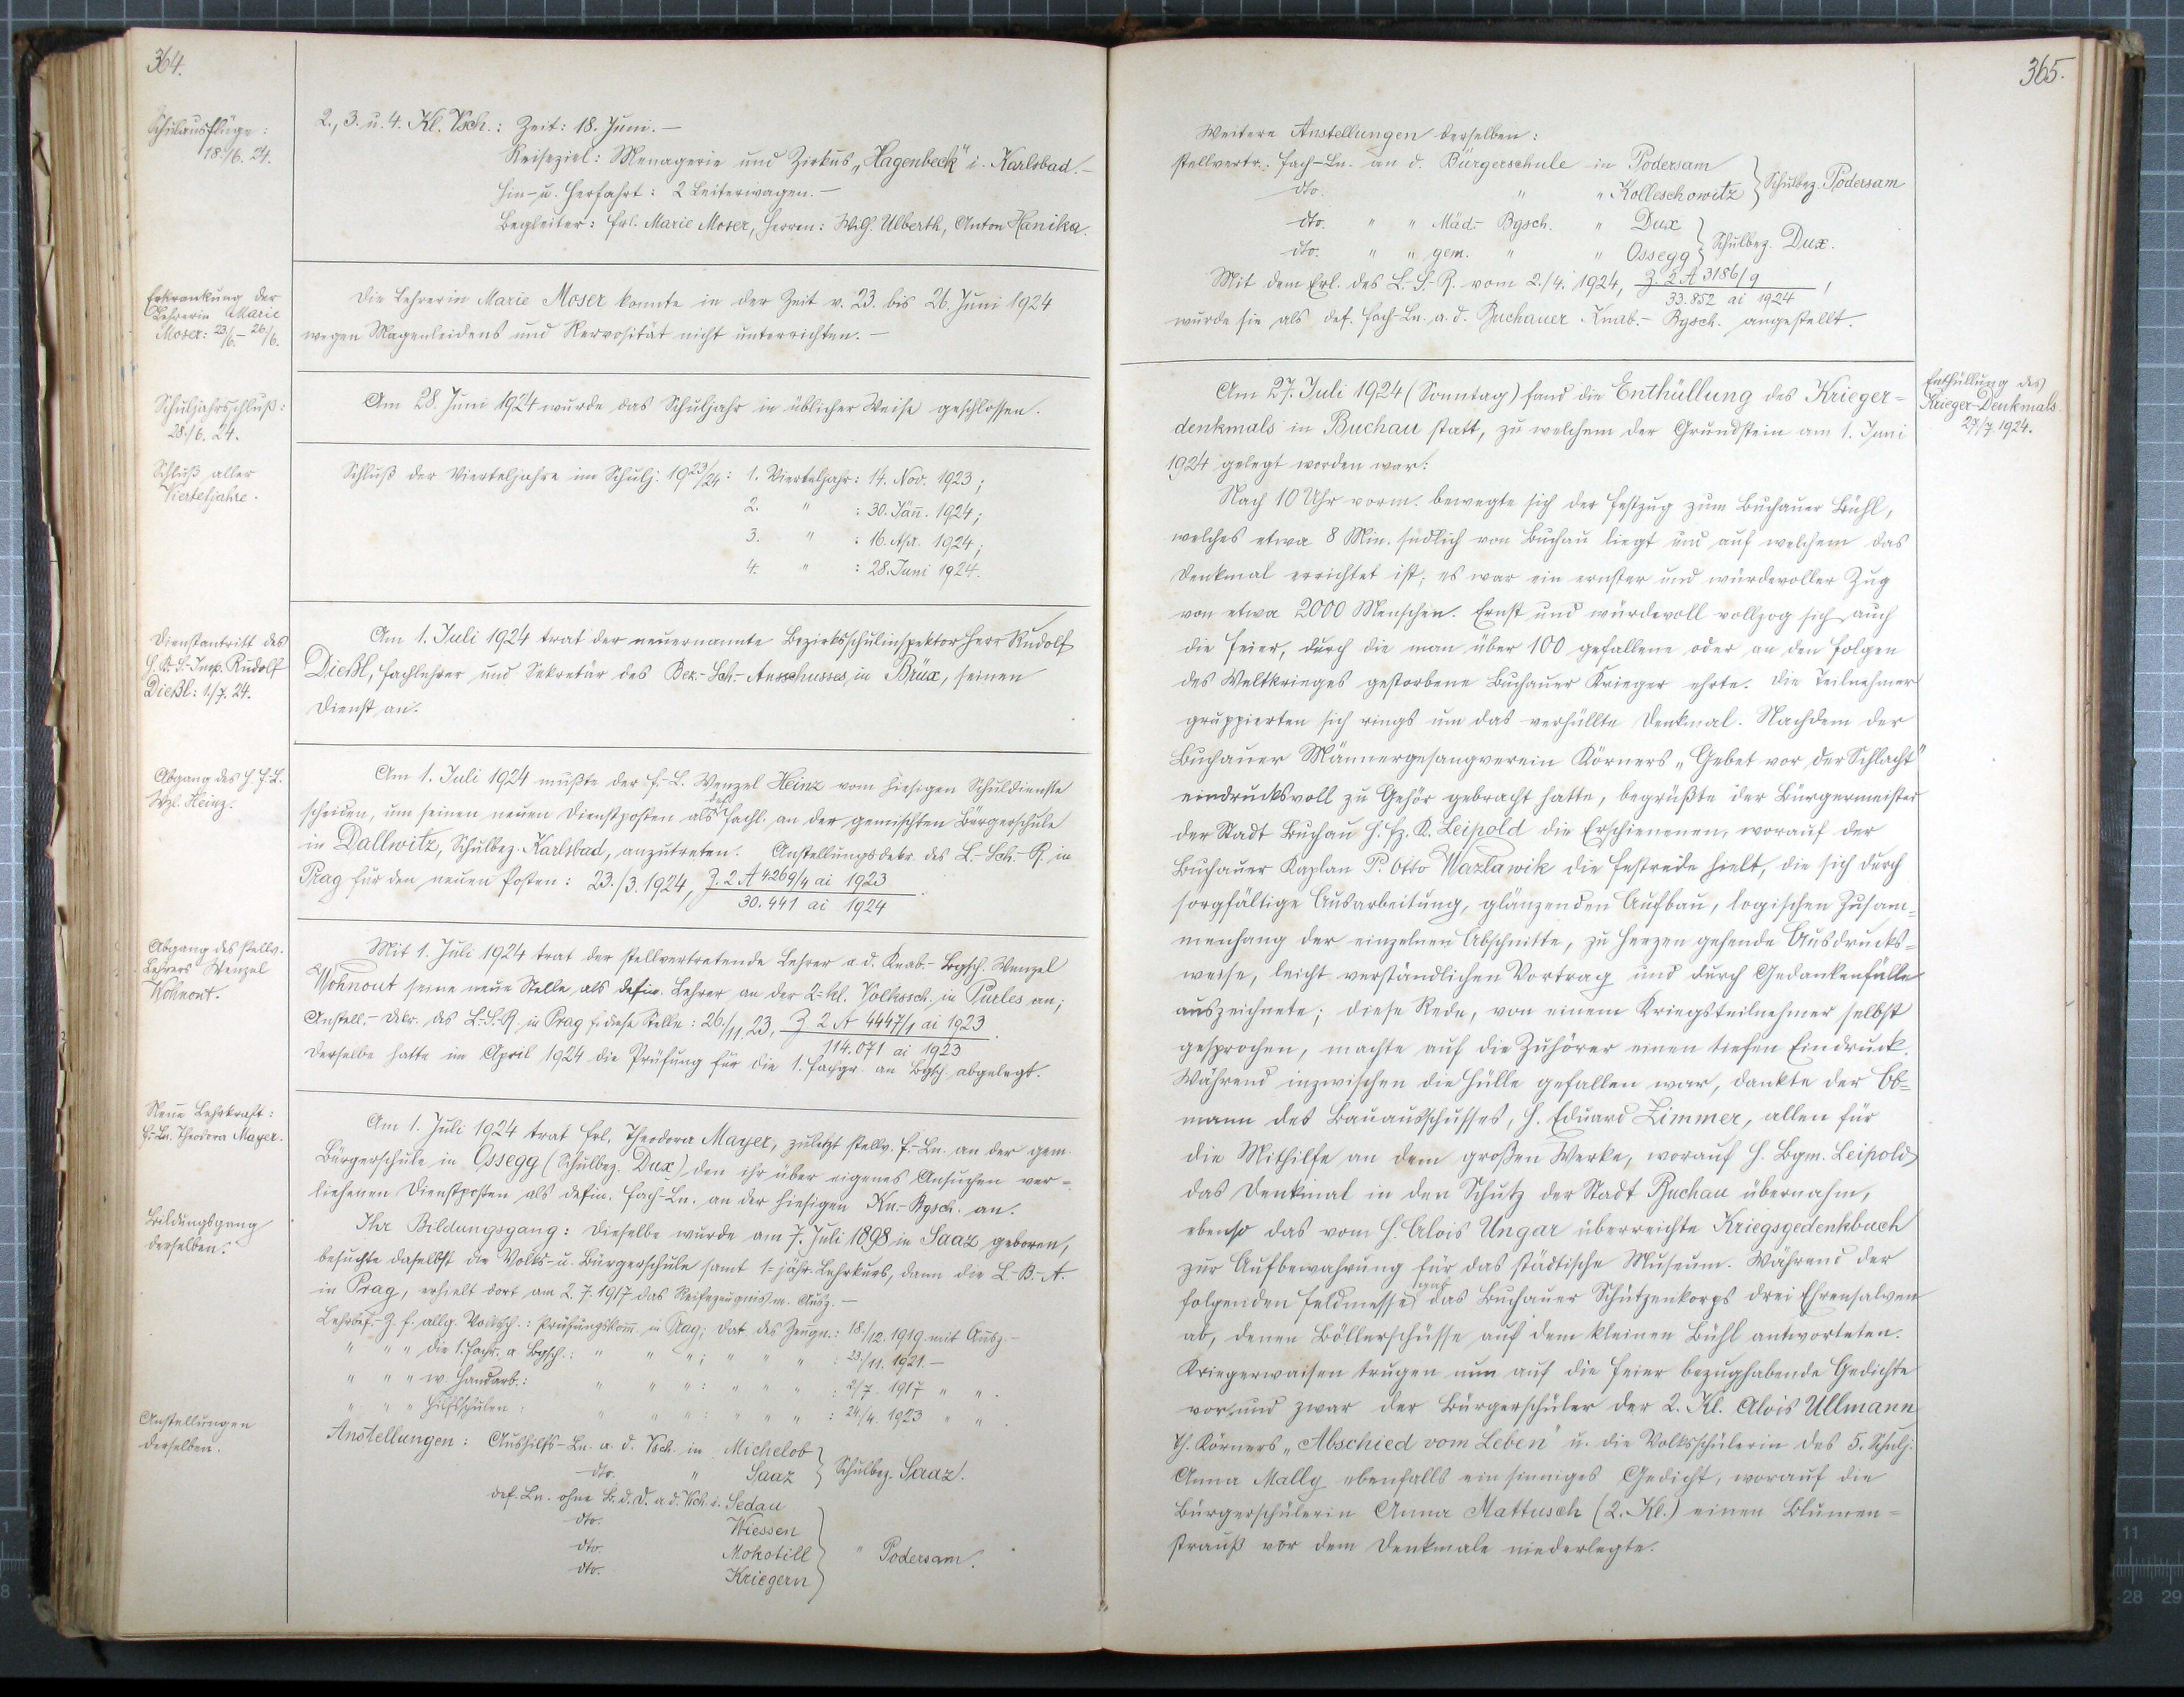 364.
Schulausflüge:
18./6. 24.
2., 3. u. 4. Kl. Vsch.: Zeit: 18. Juni. —
Reiseziel: Menagerie und Zirkus „Hagenbeck" i. Karlsbad. —
Hin- u. Herfahrt: 2 Leiterwagen. —
Begleiter: Frl. Marie Moser, Herren: Wilh. Ulberth, Anton Hanika.
Erkrankung der
Lehrerin Marie
Moser: 23/6. – 26/6.
Die Lehrerin Marie Moser konnte in der Zeit v. 23. bis 26. Juni 1924
wegen Magenleidens und Nervosität nicht unterrichten. —
Schuljahrsschluß:
28./6. 24.
Am 28. Juni 1924 wurde das Schuljahr in üblicher Weise geschlossen.
Schluß aller
Vierteljahre.
Schluß der Vierteljahre im Schulj. 1923/24: 1. Vierteljahr: 14. Nov. 1923;
2. " : 30. Jän̄. 1924;
3. " : 16. Apr. 1924;
4. " : 28. Juni 1924.
Dienstantritt des
H. B.-S.-Insp. Rudolf
Dießl: 1/7. 24.
Am 1. Juli 1924 trat der neuernannte Bezirksschulinspektor Herr Rudolf
Dießl, Fachlehrer und Sekretär des Bez.-Sch.-Ausschusses in Brüx, seinen
Dienst an.
Abgang des H. F.-L.
Wzl. Heinz.
Am 1. Juli 1924 mußte der F.-L. Wenzel Heinz vom hiesigen Schuldienste
scheiden, um seinen neuen Dienstposten als def. Fachl. an der gemischten Bürgerschule
in Dallwitz, Schulbez. Karlsbad, anzutreten. Anstellungsdekr. des L.-Sch.-R. in
Prag für den neuen Posten: 23./3. 1924, Z. 2 A 4269/4 ai 1923
30.441 ai 1924.
Abgang des stellv.
Lehrers Wenzel
Wohnout.
Mit 1. Juli 1924 trat der stellvertretende Lehrer a. d. Knab.-Bgsch. Wenzel
Wohnout seine neue Stelle als defin. Lehrer an der 2-kl. Volkssch. in Purles an;
Anstell.-Dekr. des L.-S.-R. in Prag f. diese Stelle: 26./11. 23, Z 2 A 4447/1 ai 1923
114.071 ai 1923.
Derselbe hatte im April 1924 die Prüfung für die 1. Fachgr. an Bgsch. abgelegt.
Neue Lehrkraft:
F.-Ln. Theodora Mayer.
Am 1. Juli 1924 trat Frl. Theodora Mayer, zuletzt stellv. F.-Ln. an der gem.
Bürgerschule in Ossegg (Schulbez. Dux) den ihr über eigenes Ansuchen ver-
liehenen Dienstposten als defin. Fach-Ln. an der hiesigen Kn.-Bgsch. an.
Bildungsgang
derselben.
Ihr Bildungsgang: Dieselbe wurde am 7. Juli 1898 in Saaz geboren,
besuchte daselbst die Volks- u. Bürgerschule samt 1-jähr. Lehrkurs, dann die L.-B.-A.
in Prag, erhielt dort am 2. 7. 1917 das Reifezeugnis m. Ausz. —
Lehrbef.-Z. f. allg. Volkssch.: Prüfungskom̄. in Prag; Dat. des Zeugn.: 18./12. 1919 mit Ausz. —
" " " die 1. Fachgr. a. Bgsch.: " " " ; " " " : 23./11. 1921. —
" " " w. Handarb.: " " " : " " " : 2/7. 1917 " " .
" " " Hilfsschulen: " " " : " " " : 24/4. 1923 " " .
Anstellungen
derselben.
Anstellungen: Aushilfs-Ln. a. d. Vsch. in Michelob
dto. " Saaz } Schulbez. Saaz.
def. Ln. ohne B. d. D. a. d. Vsch. i. Sedau
dto. Wiessen
dto. Mohotill } " Podersam.
dto. Kriegern
365.
Weitere Anstellungen derselben:
stellvertr. Fach-Ln. an d. Bürgerschule in Podersam
dto. " " Kolleschowitz } Schulbez. Podersam
dto. " " Mäd.- Bgsch. " Dux
dto. " " gem. " " Ossegg } Schulbez. Dux.
Mit dem Erl. des L.-S.-R. vom 2./4. 1924, Z. 2 A 3186/9
33.852 ai 1924,
wurde sie als def. Fach-Ln. a. d. Buchauer Knab.- Bgsch. angestellt.
Enthüllung des
Krieger-Denkmals.
27/7 1924.
Am 27. Juli 1924 (Sonntag) fand die Enthüllung des Krieger-
denkmals in Buchau statt, zu welchem der Grundstein am 1. Juni
1924 gelegt worden war.
Nach 10 Uhr vorm. bewegte sich der Festzug zum Buchauer Bühl,
welches etwa 8 Min. südlich von Buchau liegt und auf welchem das
Denkmal errichtet ist; es war ein ernster und würdevoller Zug
von etwa 2000 Menschen. Ernst und würdevoll vollzog sich auch
die Feier, durch die man über 100 gefallene oder an den Folgen
des Weltkrieges gestorbene Buchauer Krieger ehrte. Die Teilnehmer
gruppierten sich rings um das verhüllte Denkmal. Nachdem der
Buchauer Männergesangverein Körners „Gebet vor der Schlacht"
eindrucksvoll zu Gehör gebracht hatte, begrüßte der Bürgermeister
der Stadt Buchau H. Fz. K. Leipold die Erschienenen, worauf der
Buchauer Kaplan P. Otto Wazlawik die Festrede hielt, die sich durch
sorgfältige Ausarbeitung, glänzenden Aufbau, logischen Zusam-
menhang der einzelnen Abschnitte, zu Herzen gehende Ausdrucks-
weise, leicht verständlichen Vortrag und durch Gedankenfülle
auszeichnete; diese Rede, von einem Kriegsteilnehmer selbst
gesprochen, machte auf die Zuhörer einen tiefen Eindruck.
Während inzwischen die Hülle gefallen war, dankte der Ob-
mann des Bauausschusses, H. Eduard Zimmer, allen für
die Mithilfe an dem großen Werke, worauf H. Bgm. Leipold
das Denkmal in den Schutz der Stadt Buchau übernahm,
ebenso das vom H. Alois Ungar überreichte Kriegsgedenkbuch
zur Aufbewahrung für das städtische Museum. Während der
folgenden Feldmesse gab das Buchauer Schützenkorps drei Ehrensalven
ab, denen Böllerschüsse auf dem kleinen Bühl antworteten.
Kriegerwaisen trugen nun auf die Feier bezughabende Gedichte
vor, und zwar der Bürgerschüler der 2. Kl. Alois Ullmann
Th. Körners „Abschied vom Leben" u. die Volksschülerin des 5. Schulj.
Anna Mally ebenfalls ein sinniges Gedicht, worauf die
Bürgerschülerin Anna Mattusch (2. Kl.) einen Blumen-
strauß vor dem Denkmale niederlegte.